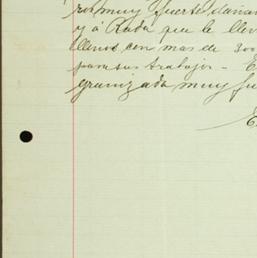 ron muy fuerte
y á Rada que le llev
llenos con mas de 300
para sus trabajos - E
granizada muy fu
E